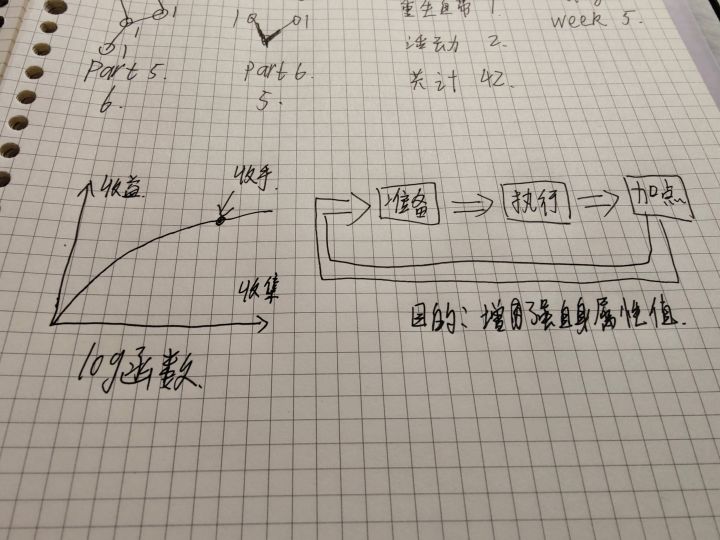 1 1
1
1 0 01
Part 5.
6.
Part 6.
5.
重生自带 1.
活动 2.
共计 42.
week 5.
收益
收手
收集
log函数
准备
执行
加点
目的: 增强自身属性值.